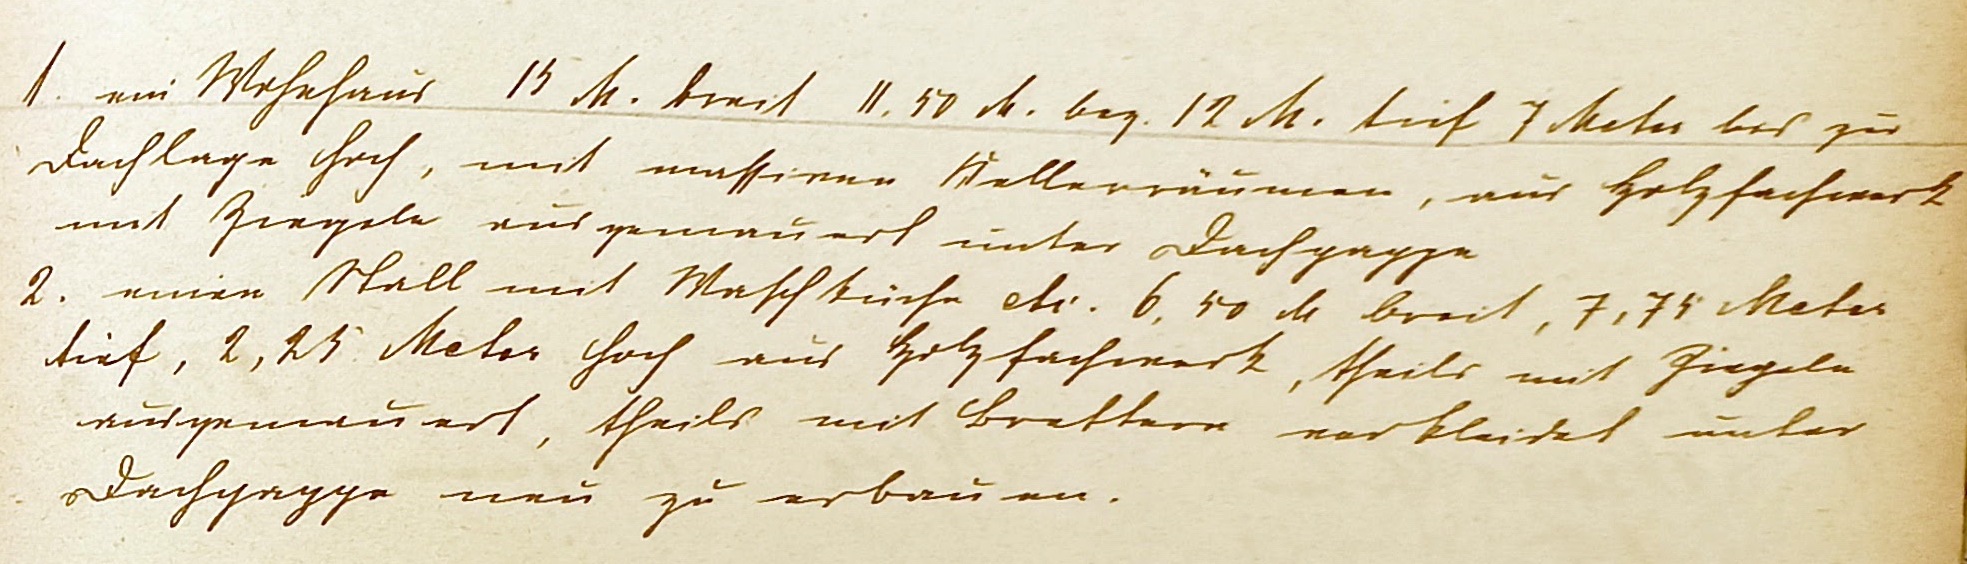 1. ein Wohnhaus 15 M. breit 11.50 M. bez. 12 M. tief 7 Meter bis zur
Dachlage hoch, mit massiven Kellerräumen, aus Holzfachwerk
mit Ziegeln ausgemauert unter Dachpappe
2. einen Stall mit Waschküche etc. 6,50 M breit, 7,75 Meter
tief, 2,25 Meter hoch aus Holzfachwerk, theils mit Ziegeln
ausgemauert, theils mit Brettern verkleidet unter
Dachpappe neu zu erbauen.